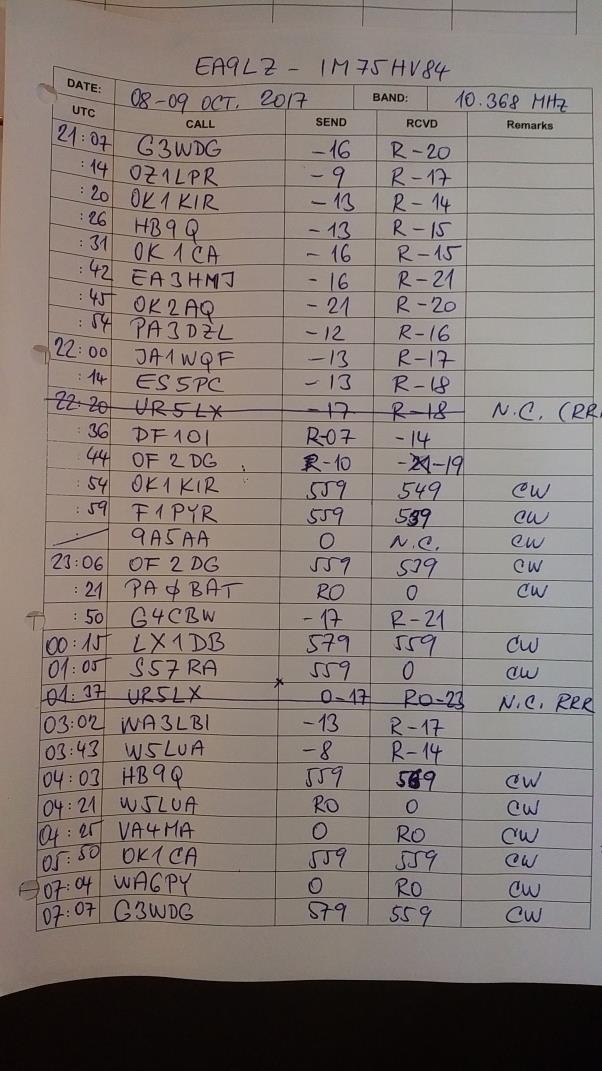 EA9LZ - IM75HV84
DATE: 08-09 OCT. 2017 BAND: 10.368 MHz
UTC CALL SEND RCVD Remarks
21:07 G3WDG -16 R-20
:14 OZ1LPR -9 R-17
:20 OK1KIR -13 R-14
:26 HB9Q -13 R-15
:31 OK1CA -16 R-15
:42 EA3HMJ -16 R-21
:45 OK2AQ -21 R-20
:54 PA3DZL -12 R-16
22:00 JA1WQF -13 R-17
:14 ES5PC -13 R-18
22:20 UR5LX -17 R-18 N.C. (RRR
:36 DF1OI R-07 -14
:44 OF2DG R-10 -21-19
:54 OK1KIR 559 549 CW
:59 F1PYR 559 CW
9A5AA O N.C. CW
23:06 OF2DG 559 539 CW
:21 PAØBAT RO O CW
:50 G4CBW -17 R-21
00:15 LX1DB 579 559 CW
01:05 S57RA 559 O CW
01:37 UR5LX O-17 RO-23 N.C. RRR
03:02 WA3LBI -13 R-17
03:43 W5LUA -8 R-14
04:03 HB9Q 559 CW
04:21 W5LUA RO O CW
04:25 VA4MA O RO CW
05:50 OK1CA 559 559 CW
07:04 WA6PY O RO CW
07:07 G3WDG 579 559 CW